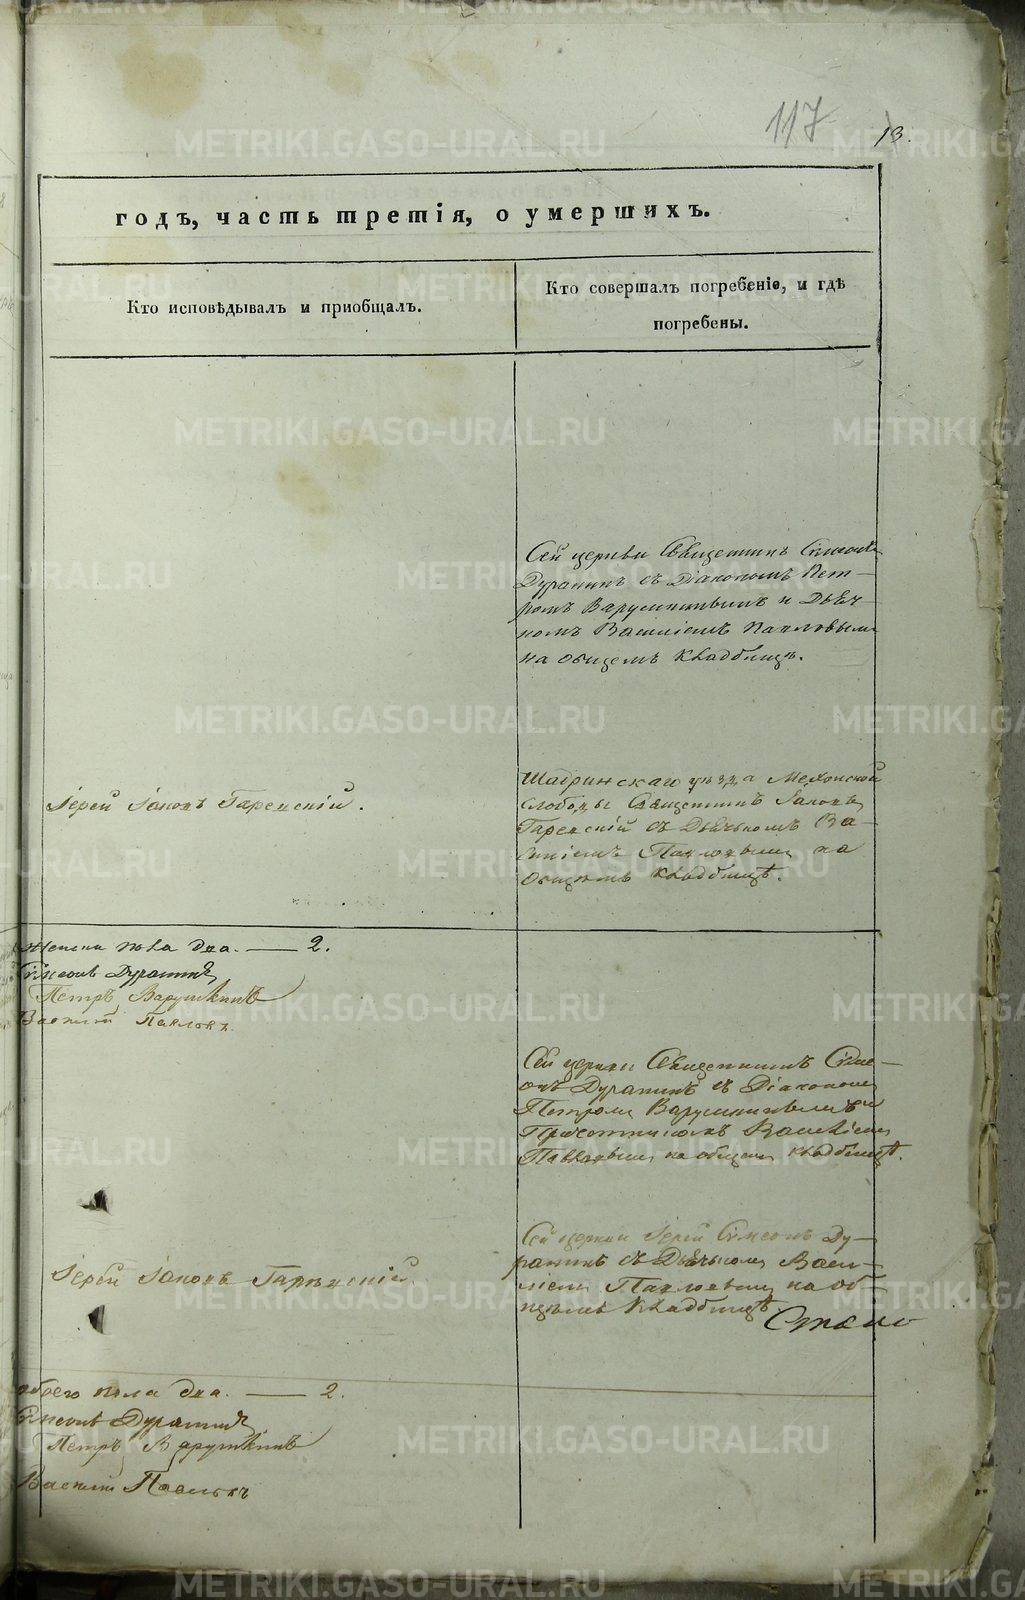 117
13.
годъ, часть третія, о умершихъ.
Кто исповѣдывалъ и приобщалъ.
Кто совершалъ погребеніе, и гдѣ
погребены.
Сей церкви Священникъ Симеонъ
Дуранинъ съ Діакономъ Пет-
ромъ Варушкинымъ и Дьяч-
комъ Василіемъ Павловымъ
на общемъ кладбищѣ.
Іерей Іаковъ Гаренскій.
Шадринскаго уѣзда Мехонской
слободы Священникъ Іаковъ
Гаренскій съ Дьячкомъ Ва-
силіемъ Павловымъ на
общемъ кладбищѣ.
женска пола два. — 2.
Симеонъ Дуранинъ
Петръ Варушкинъ
Василій Павловъ
Сей церкви Священникъ Симе-
онъ Дуранинъ съ Діакономъ
Петромъ Варушкинымъ и
Причетникомъ Василіемъ
Павловымъ на общемъ кладбищѣ.
Сей церкви Іерей Симеонъ Ду-
ранинъ съ Дьячкомъ Васи-
ліемъ Павловымъ на об-
щемъ кладбищѣ.
Іерей Іаковъ Гаренскій.
обоего пола два. — 2.
Симеонъ Дуранинъ
Петръ Варушкинъ
Василій Павловъ
METRIKI.GASO-URAL.RU